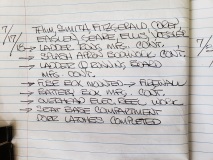 7/17/18
THUM, SMITH, FITZGERALD, COREY,
EAGLEN, SEARE, ELLIS, VOSSLER
→ LADDER RUNG MFG. CONT.
→ BRUSH AFTON BODYWORK CONT.
→ LADDER & RUNNING BOARD
MFG. CONT.
→ FUSE BOX MOUNTED → FIREWALL
→ BATTERY BOX MFG. CONT.
→ OVERHEAD ELEC. REEL WORK
→ SEAT BASE COMPARTMENT
DOOR LATCHES COMPLETED